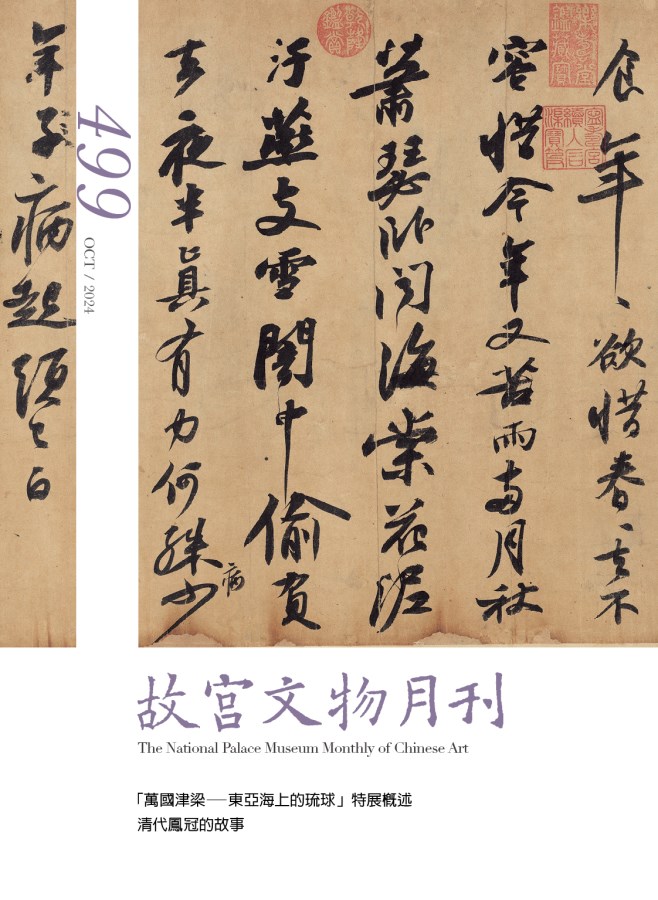 食年、欲惜春、去不
容惜今年又苦雨兩月秋
蕭瑟臥聞海棠花泥
汙燕支雪闇中偷負
去夜半真有力何殊少
病
年子病起須已白
乾隆鑑賞
樂壽堂鑑藏寶
寧壽宮續入石渠寶笈
499
OCT / 2024
故宮文物月刊
The National Palace Museum Monthly of Chinese Art
「萬國津梁──東亞海上的琉球」特展概述
清代鳳冠的故事